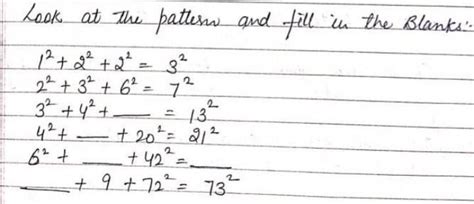 Look at the pattern and fill in the Blanks:-
1² + 2² + 2² = 3²
2² + 3² + 6² = 7²
3² + 4² + ___ = 13²
4² + ___ + 20² = 21²
6² + ___ + 42² = ___
___ + 9 + 72² = 73²